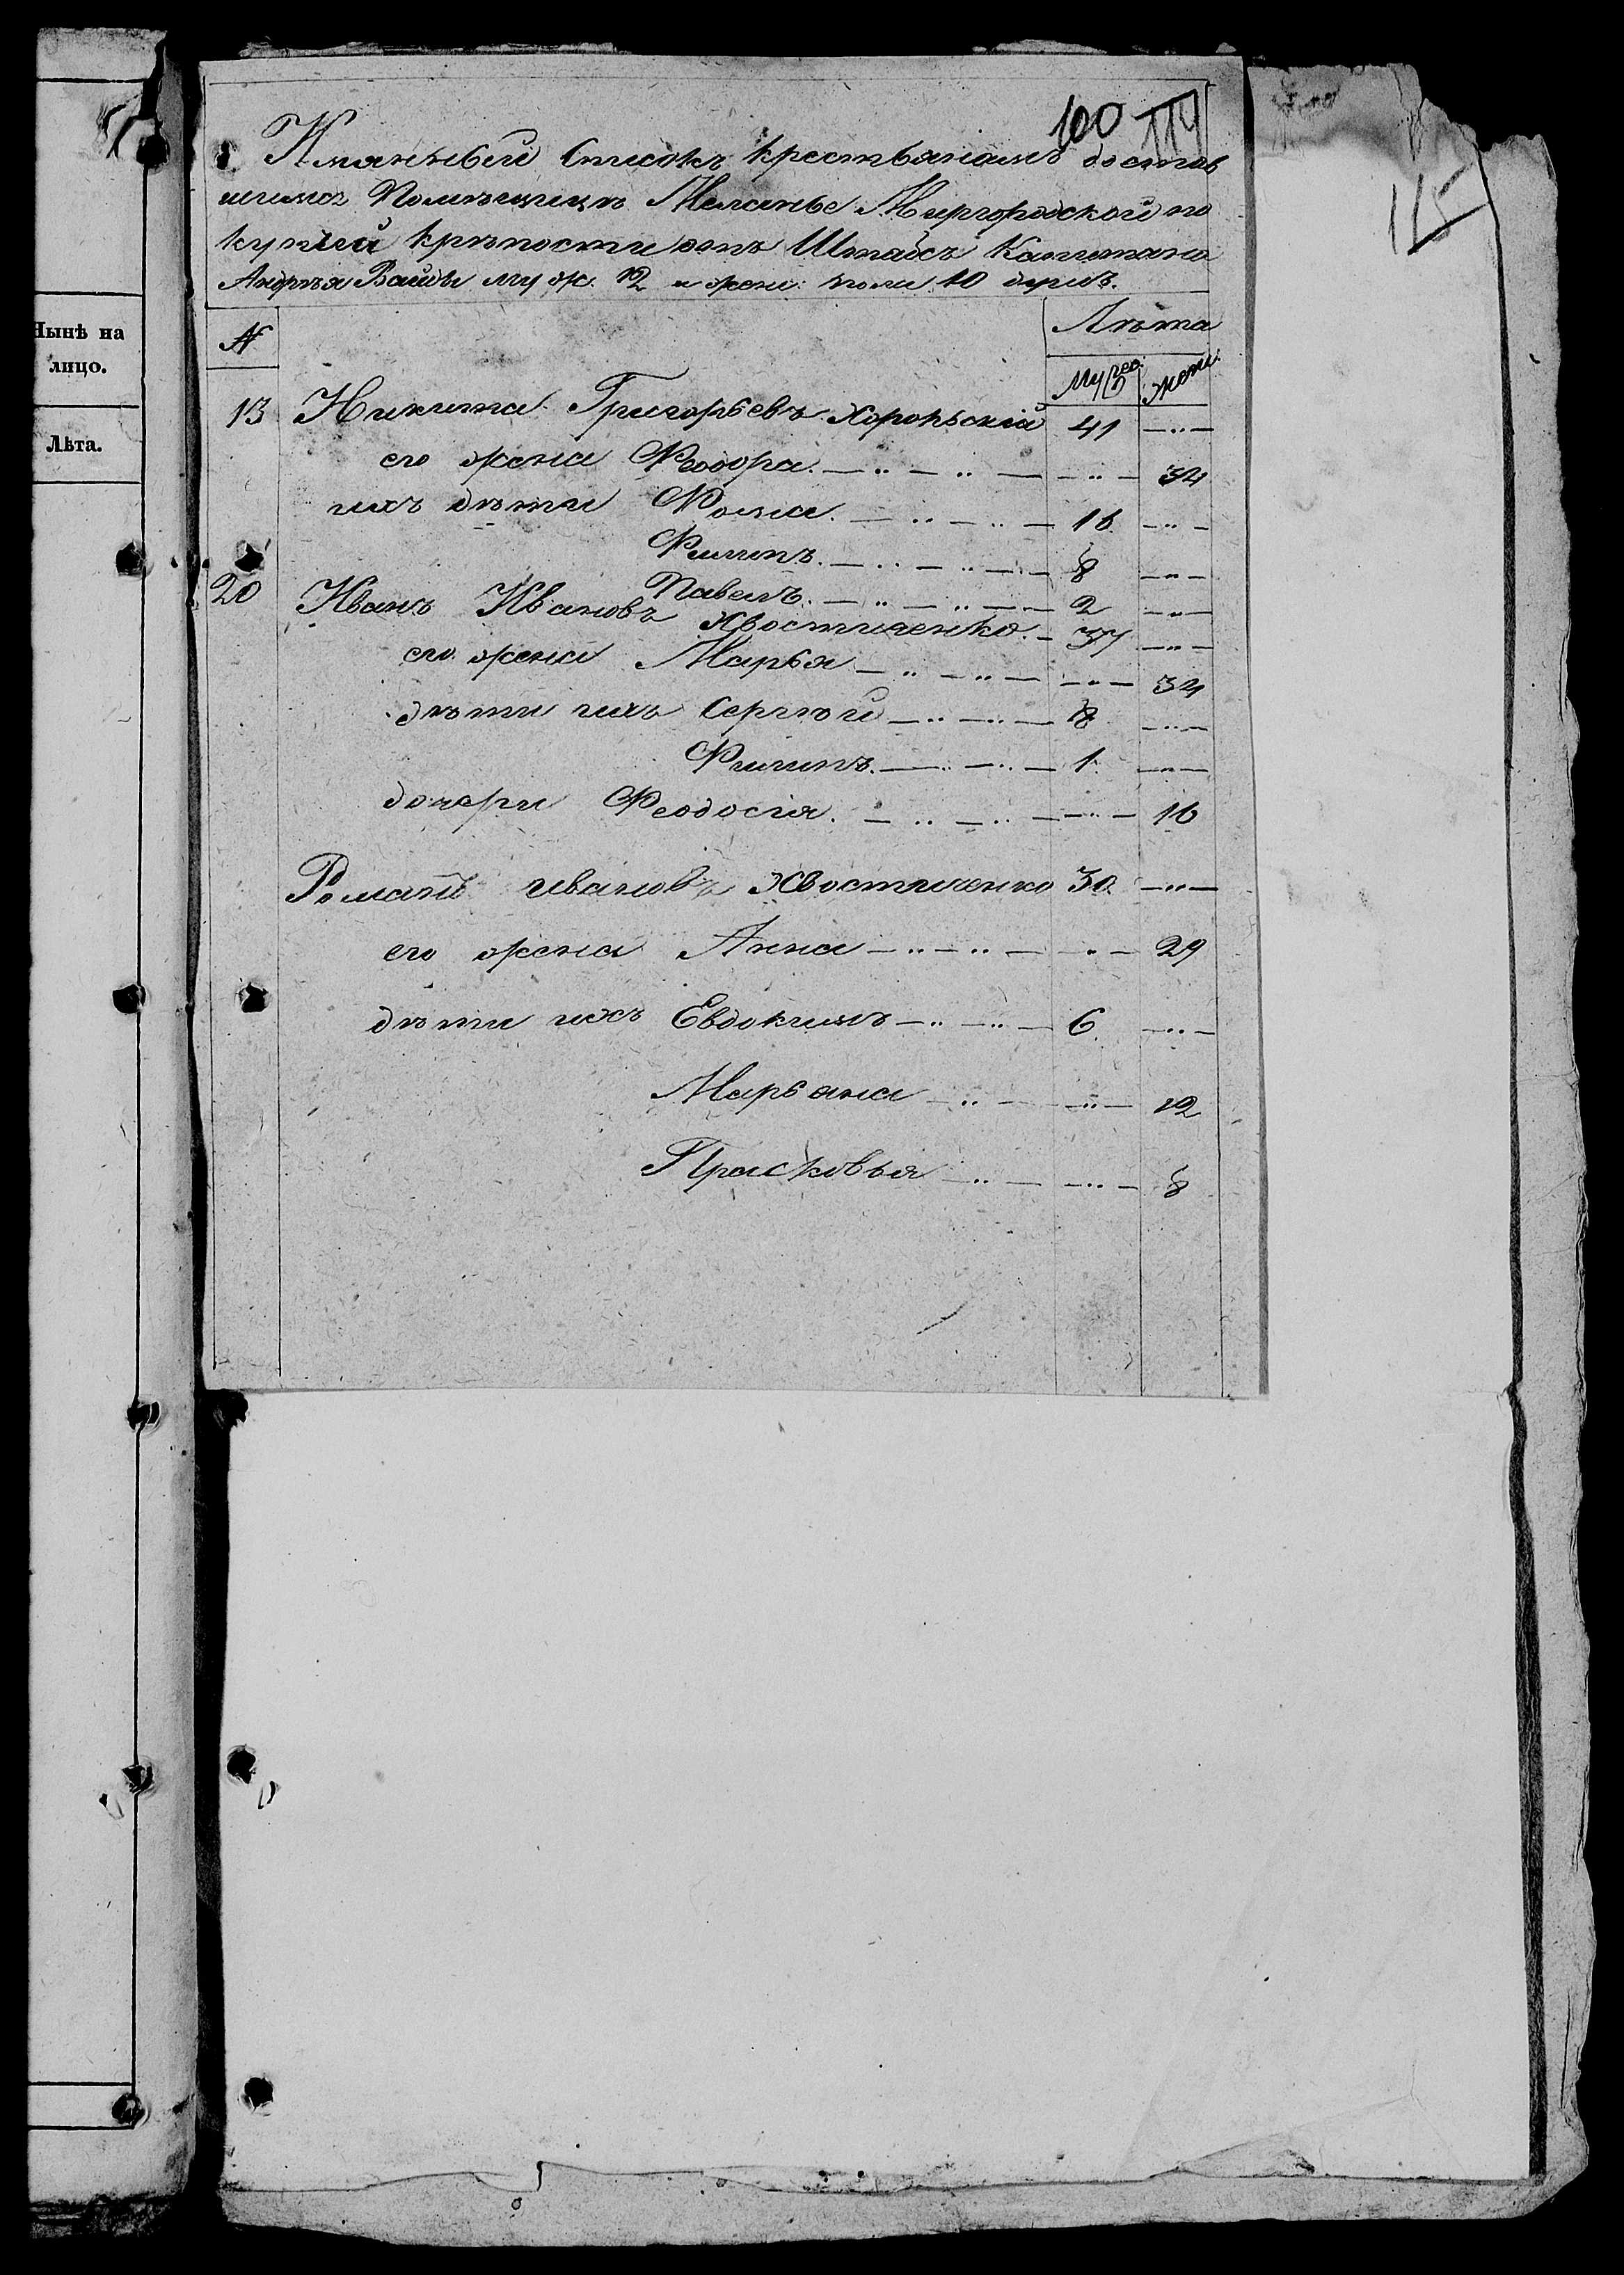 Нынѣ на
лицо.
Лѣта.
100 119
115
Имянный Списокъ крестьянамъ достав
шимся Помѣщицѣ Меланье Миргородской по
купчей крѣпости отъ Штабсъ Капитана
Андрея Вайды муж. 12 и жен: пола 10 душъ.
№ Лѣта
Муже: Жен:
13 Никита Григорьевъ Хорольскій 41 —〃—
его жена Феодора. —〃—〃— —〃— 34
ихъ дѣти Фома. —〃—〃— 16 —〃—
Филипъ. —〃—〃— 8 —〃—
Павелъ. —〃—〃— 2 —〃—
20 Иванъ Ивановъ Хвостиченко. — 37 —〃—
его жена Марья —〃—〃— —〃— 34
дѣти ихъ Сергѣй —〃—〃— 18 —〃—
Филипъ. —〃—〃— 1 —〃—
дочери Феодосія. —〃—〃— —〃— 16
Романъ ивановъ Хвостиченко 30 —〃—
его жена Анна —〃—〃— —〃— 29
дѣти ихъ Евдокимъ —〃—〃— 6 —〃—
Марьяна —〃— —〃— 12
Прасковья —〃— —〃— 8